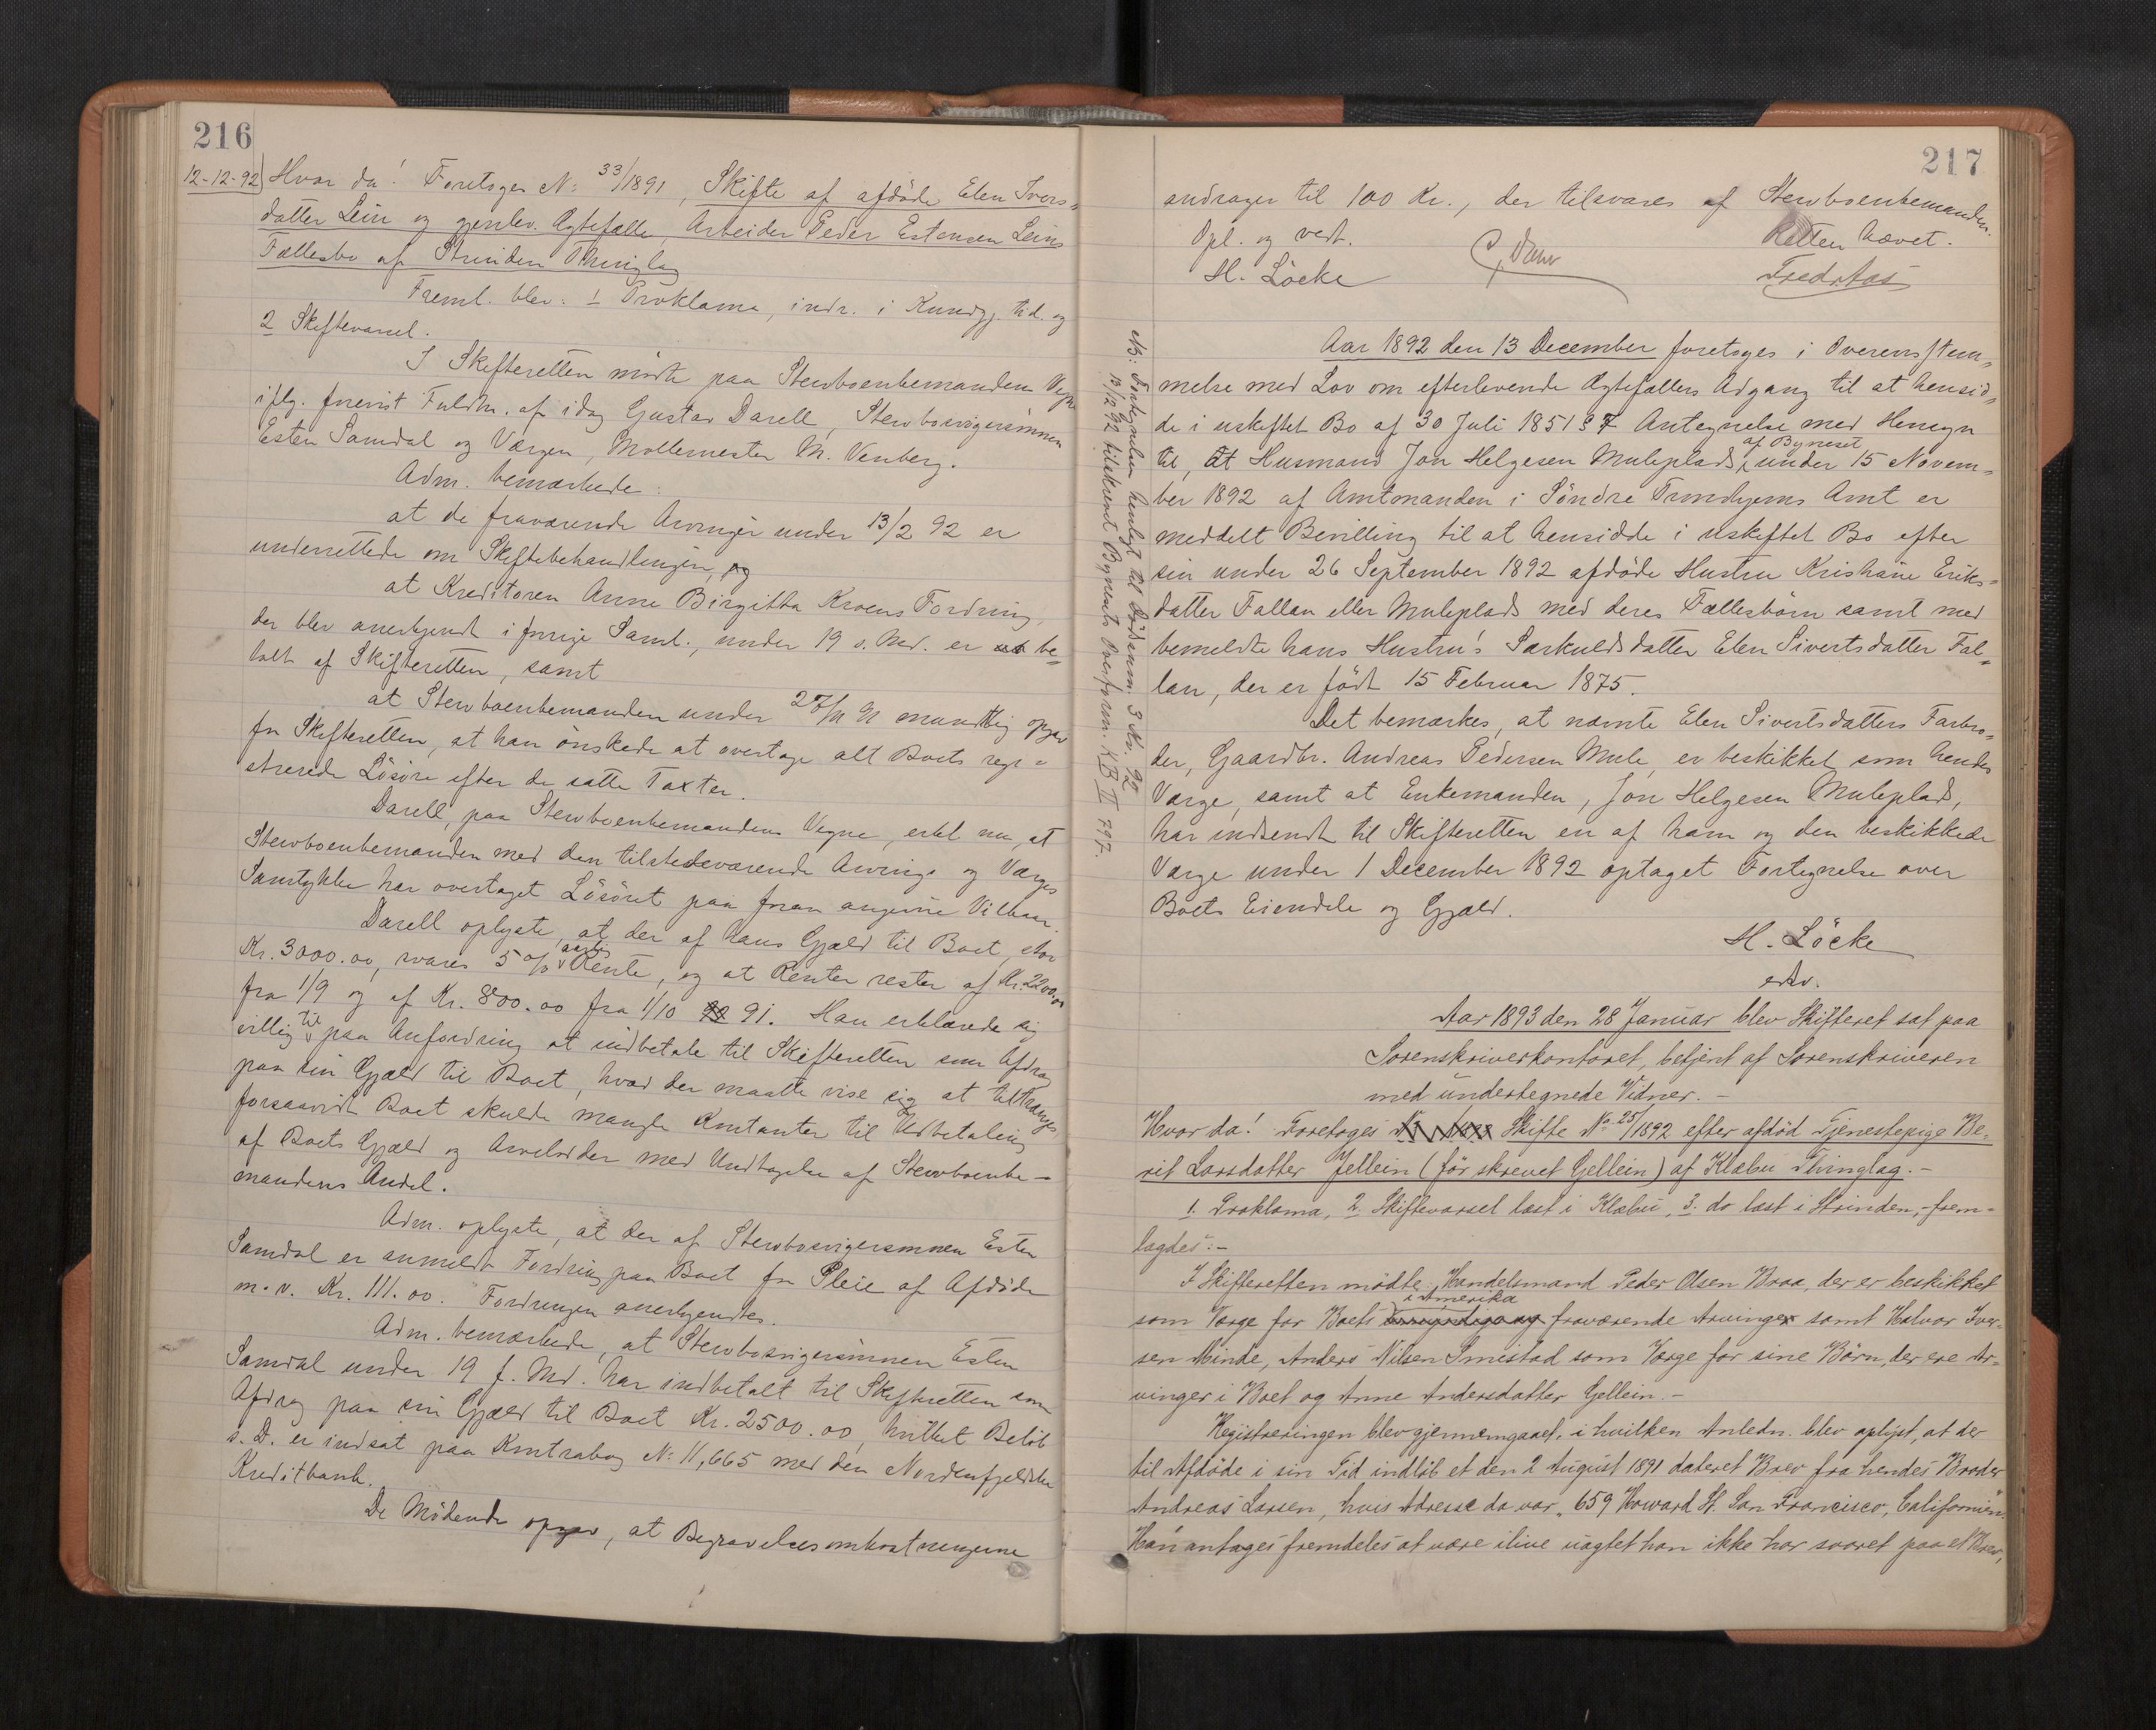 216
12-12-92) Hvor da! Foretoges No: 33/1891, Skifte af afdöde Elen Ivers-
datter Lein og gjenlev. Ægtefælle, Arbeider Peder Estensen Leins
Fællesbo af Strinden Thinglag
Freml. blev: 1 Proklama, indr. i Kundgj. tid. og
2 Skiftevarsel.
I Skifteretten mödte paa Stervboenkemandens Vegne
iflg. forevist Fuldm. af idag Gustav Darell, Stervbosvigersönnen
Esten Samdal og Værgen, Möllemester M. Venberg.
Adm. bemærkede:
at de fraværende Arvinger under 13/2 92 er
underrettede om Skiftebehandlingen, og
at Kreditoren Anne Birgitta Kroens Fordring,
der blev anerkjendt i forrige Saml., under 19 s. Md. er ud be-
talt af Skifteretten, samt
at Stervboenkemanden under 27/11 91 mundtlig opgav
for Skifteretten, at han önskede at overtage alt Boets regi-
strerede Lösöre efter de satte Taxter.
Darell, paa Stervboenkemandens Vegne, erkl. nu, at
Stervboenkemanden med den tilstedeværende Arvings og Værges
Samtykke har overtaget Lösöret paa foran angivne Vilkaar.
Darell oplyste, at der af hans Gjæld til Boet, stor
Kr. 3000.00, svares 5 % aarlig Rente, og at Renter rester af Kr. 2200.00
fra 1/9 og af Kr. 800.00 fra 1/10 92 91. Han erklærede sig
villig til paa Anfordring at indbetale til Skifteretten som Afdrag
paa sin Gjæld til Boet, hvad der maatte vise sig at tiltrænges,
forsaavidt Boet skulde mangle Kontanter til Udbetaling
af Boets Gjæld og Arvelodder med Undtagelse af Stervboenke-
mandens Andel.
Adm. oplyste, at der af Stervbosvigersönnen Esten
Samdal er anmeldt Fordring paa Boet for Pleie af Afdöde
m. v. Kr. 111.00. Fordringen anerkjendtes.
Adm. bemærkede, at Stervbosvigersönnen Esten
Samdal under 19 f. Md. har indbetalt til Skifteretten som
Afdrag paa sin Gjæld til Boet Kr. 2500.00, hvilket Belöb
s. D. er indsat paa Kontrabog No: 11,665 med den Nordenfjeldske
Kreditbank.
De Mödende opgav, at Begravelsesomkostningerne
217
andrager til 100 Kr., der tilsvares af Stervboenkemanden.
Opl. og vedt. Retten hævet.
H. Löcke Fredr Aas
Aar 1892 den 13 December foretoges i Overensstem-
melse med Lov om efterlevende Ægtefællers Adgang til at hensid-
de i uskiftet Bo af 30 Juli 1851 § 7 Antegnelse med Hensyn
til, at Husmand Jon Helgesen Muleplads, af Byneset under 15 Novem-
ber 1892 af Amtmanden i Söndre Trondhjems Amt er
meddelt Bevilling til at hensidde i uskiftet Bo efter
sin under 26 September 1892 afdöde Hustru Kristiane Eriks-
datter Fallan eller Muleplads med deres Fællesbörn samt med
bemeldte hans Hustru's Særkuldsdatter Elen Sivertsdatter Fal-
lan, der er födt 15 Februar 1875.
Det bemærkes, at nævnte Elen Sivertsdatters Farbro-
der, Gaardbr. Andreas Pedersen Mule, er beskikket som hendes
Værge, samt at Enkemanden, Jon Helgesen Muleplads,
har indsendt til Skifteretten en af ham og den beskikkede
Værge under 1 December 1892 optaget Fortegnelse over
Boets Eiendele og Gjæld.
H. Löcke
NB: Fortegnelsen henlagt til Dödsanm. 3 Kv. 92
13/12 92 tilskrevet Bynesets Overform. KB II 797.
Aar 1893 den 28 Januar blev Skifteret sat paa
Sorenskriverkontoret, betjent af Sorenskriveren
med undertegnede Vidner. -
Hvor da! Foretoges Skifte No. 25/1892 efter afdöd Tjenestepige Be-
rit Larsdatter Jellein (för skrevet Gellein) af Klæbu Thinglag. -
1. Proklama, 2. Skiftevarsel læst i Klæbu, 3. do læst i Strinden, - frem-
lagdes: -
I Skifteretten mödte: Handelsmand Peder Olsen Braa, der er beskikket
som Værge for Boets i Amerika fraværende Arvinger samt Halvor Iver-
sen Minde, Anders Nilsen Smistad som Værge for sine Börn, der ere Ar-
vinger i Boet og Anne Andersdatter Gellein. -
Registreringen blev gjennemgaaet, i hvilken Anledn. blev oplyst, at der
til Afdöde i sin Tid indlöb et den 2 August 1891 dateret Brev fra hendes Broder
Andreas Larsen, hvis Adresse da var „659 Howard St. San Francisco, Californien".
Han antages fremdeles at være ilive uagtet han ikke har svaret paa et Brev,